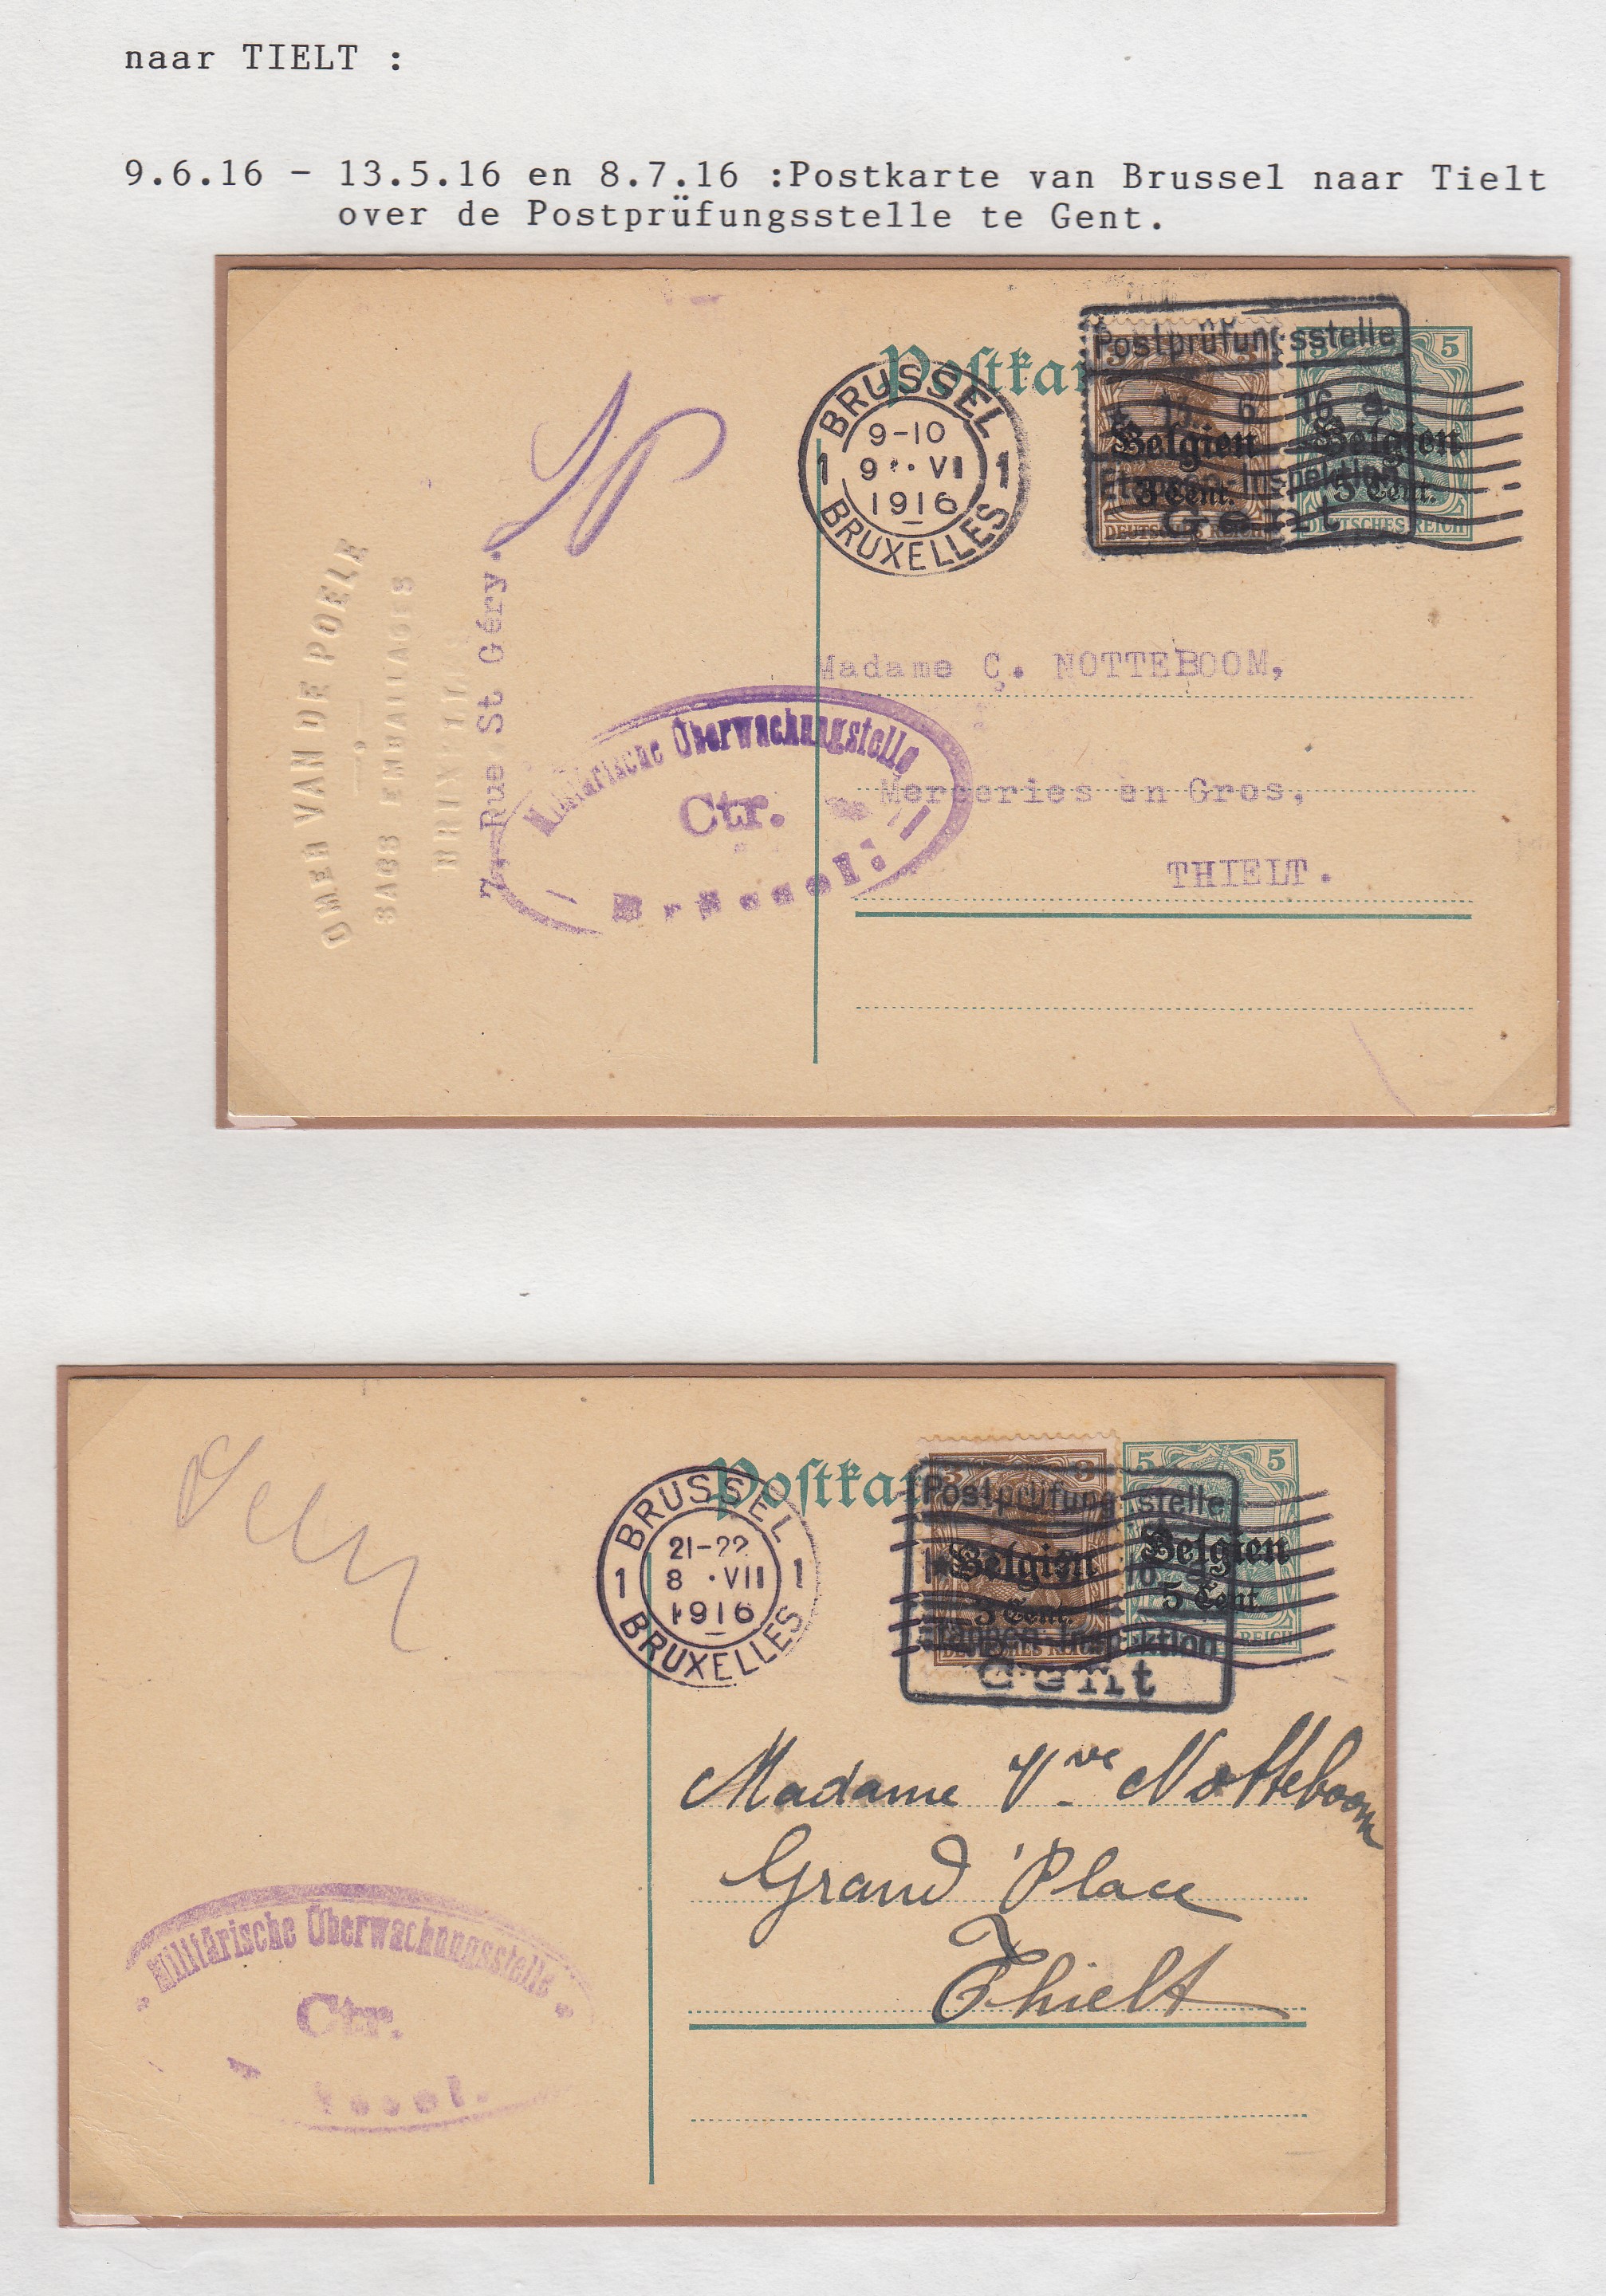 naar TIELT :
9.6.16 - 13.5.16 en 8.7.16 :Postkarte van Brussel naar Tielt
over de Postprüfungsstelle te Gent.
Postkar
BRUSSEL
1 9-10 1
9 · VI
1916
BRUXELLES
Postprüfungsstelle
6 16
Etappen-Inspektion
Gent
3
Belgien
3 Cent.
DEUTSCHES REICH
5 5
Belgien
5 Cent.
DEUTSCHES REICH
OMER VAN DE POELE
SACS EMBALLAGES
BRUXELLES
7, Rue St Géry.
Militärische Überwachungstelle
Ctr.
Brüssel.
Madame C. NOTTEBOOM,
Merceries en Gros,
THIELT.
Postka
BRUSSEL
21-22
1 8 · VII 1
1916
BRUXELLES
Postprüfungsstelle
Etappen-Inspektion
Gent
3 3
Belgien
3 Cent.
5 5
Belgien
5 Cent.
REICH
Madame Vve Notteboom
Grand'Place
Thielt
Militärische Überwachungsstelle
Ctr.
ssel.